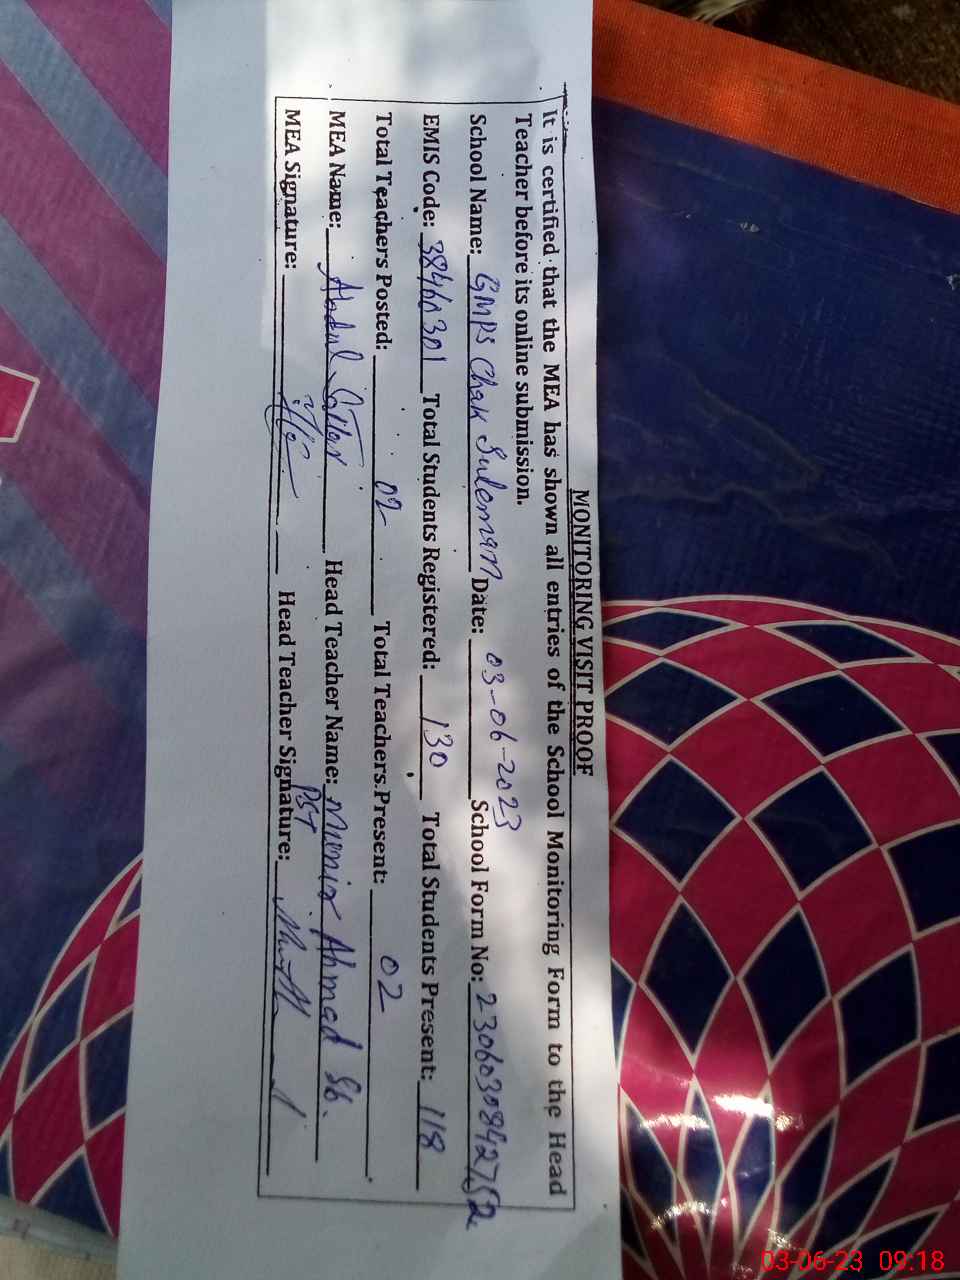 MONITORING VISIT PROOF
It is certified that the MEA has shown all entries of the School Monitoring Form to the Head
Teacher before its online submission.
School Name: GMPS Chak Suleman Date: 03-06-2023 School Form No:
EMIS Code: 38460301 Total Students Registered: 130 Total Students Present: 118
Total Teachers Posted: 02 Total Teachers Present: 02
MEA Name: Abdul Head Teacher Name: Munir Ahmad Sb.
PST
MEA Signature: Head Teacher Signature:
03-06-23 09:18